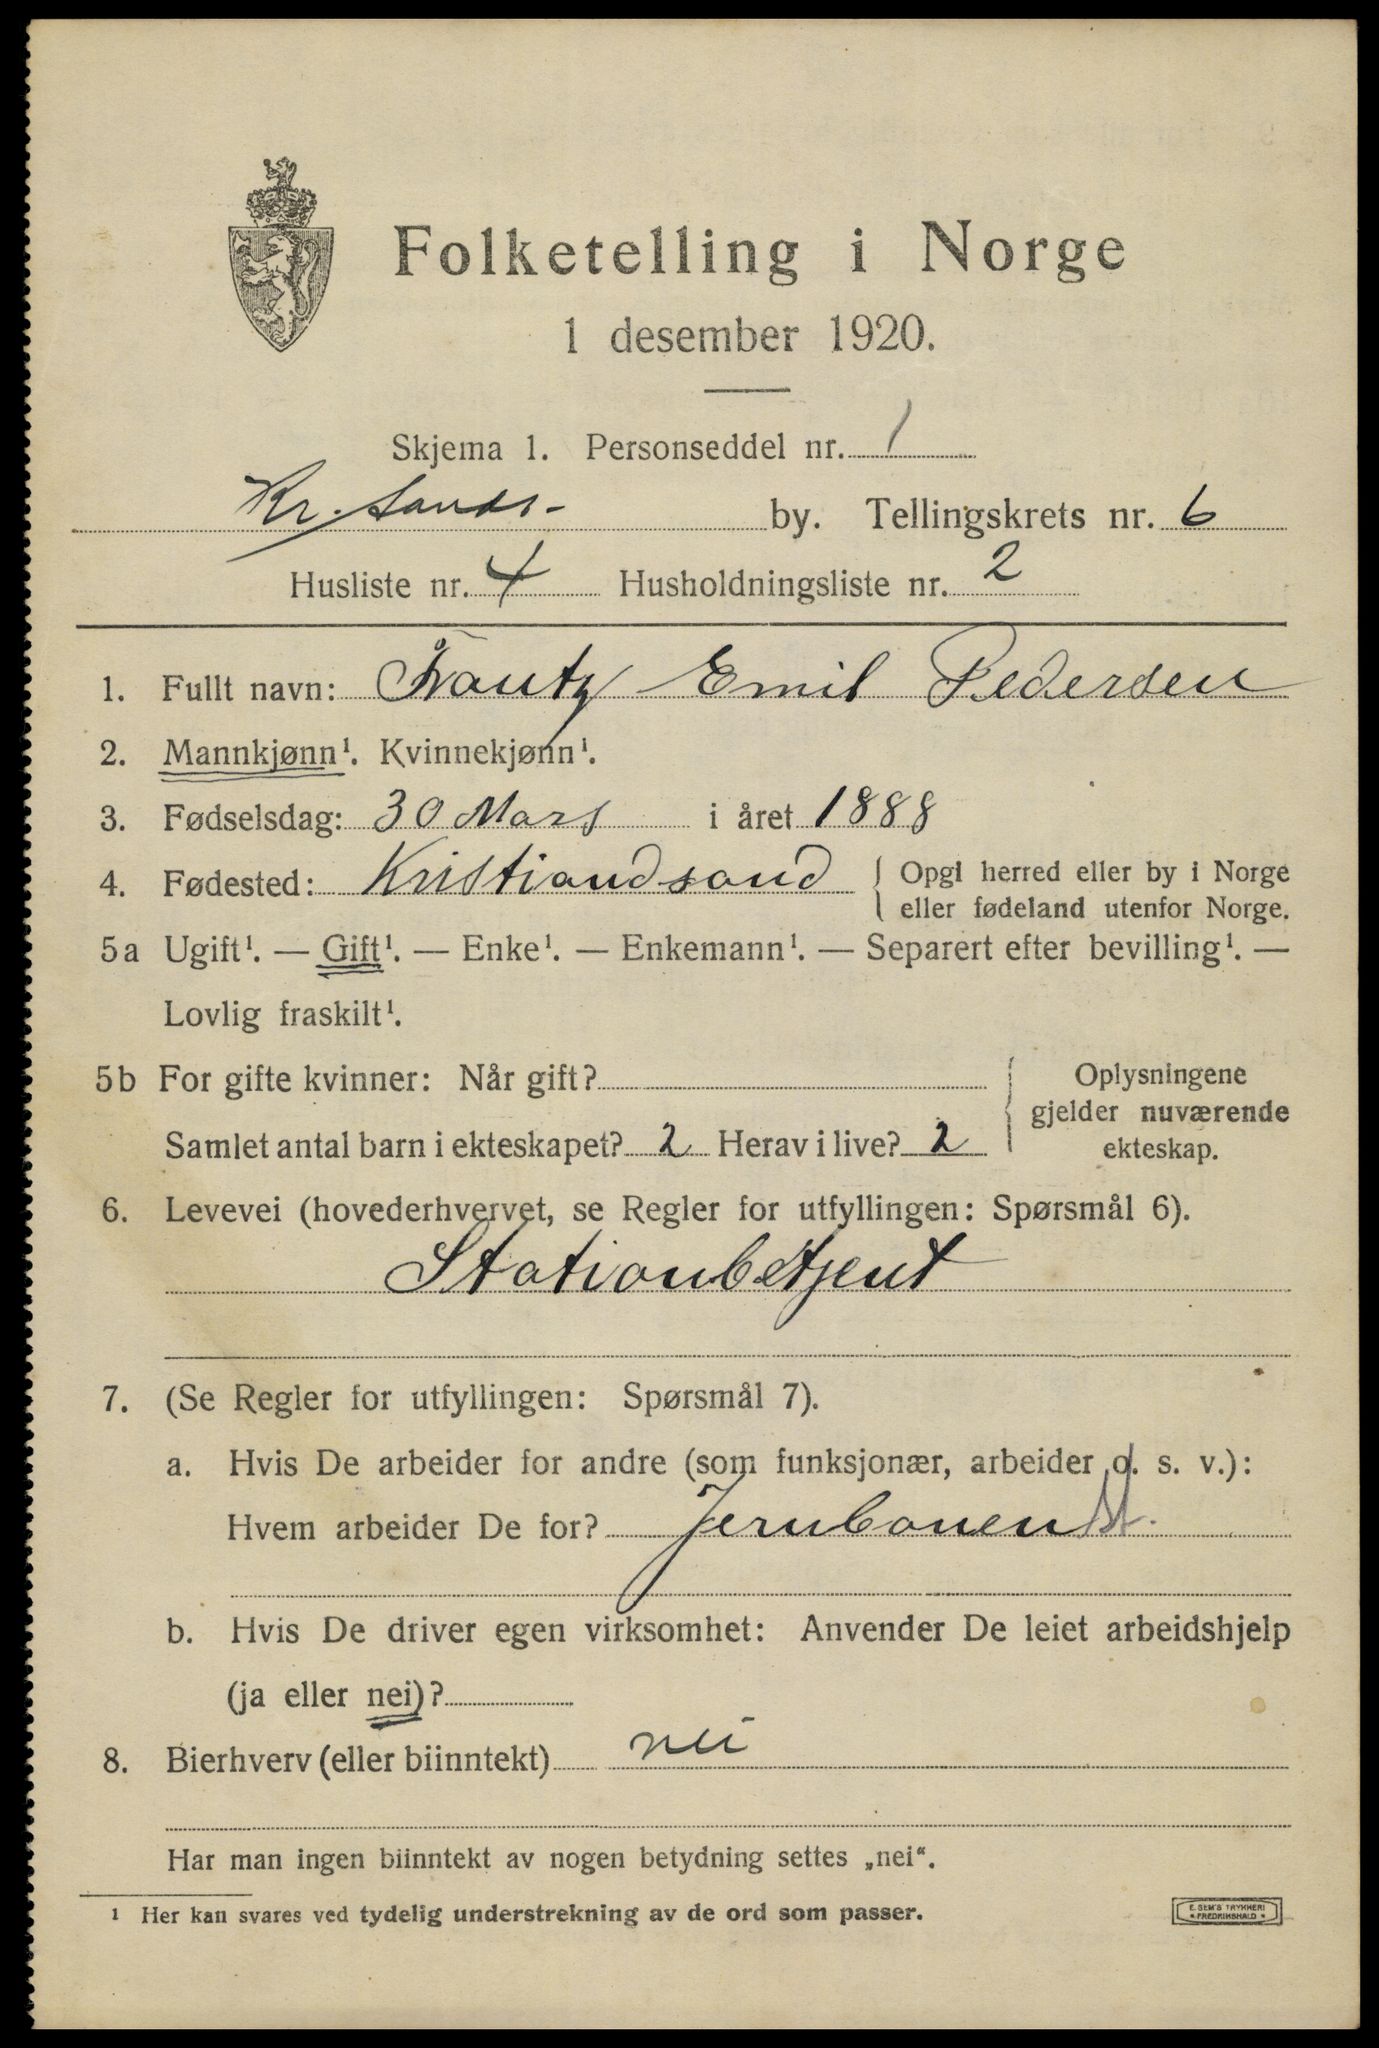 Folketelling i Norge
1 desember 1920.
Skjema 1. Personseddel nr. 1
Kr.sands- by. Tellingskrets nr. 6
Husliste nr. 4 Husholdningsliste nr. 2
1. Fullt navn: Frantz Emil Pedersen
2. Mannkjønn¹. Kvinnekjønn¹.
3. Fødselsdag: 30 Mars i året 1888
4. Fødested: Kristiandsand { Opgi herred eller by i Norge
eller fødeland utenfor Norge.
5a Ugift¹. — Gift¹. — Enke¹. — Enkemann¹. — Separert efter bevilling¹. —
Lovlig fraskilt¹.
5b For gifte kvinner: Når gift? { Oplysningene
gjelder nuværende
Samlet antal barn i ekteskapet? 2 Herav i live? 2 ekteskap.
6. Levevei (hovederhvervet, se Regler for utfyllingen: Spørsmål 6).
Stationbetjent
7. (Se Regler for utfyllingen: Spørsmål 7).
a. Hvis De arbeider for andre (som funksjonær, arbeider o. s. v.):
Hvem arbeider De for? Jernbanen St.
b. Hvis De driver egen virksomhet: Anvender De leiet arbeidshjelp
(ja eller nei)?
8. Bierhverv (eller biinntekt) nei
Har man ingen biinntekt av nogen betydning settes „nei“.
¹ Her kan svares ved tydelig understrekning av de ord som passer.
E. SEM'S TRYKKERI
• FREDRIKSHALD •